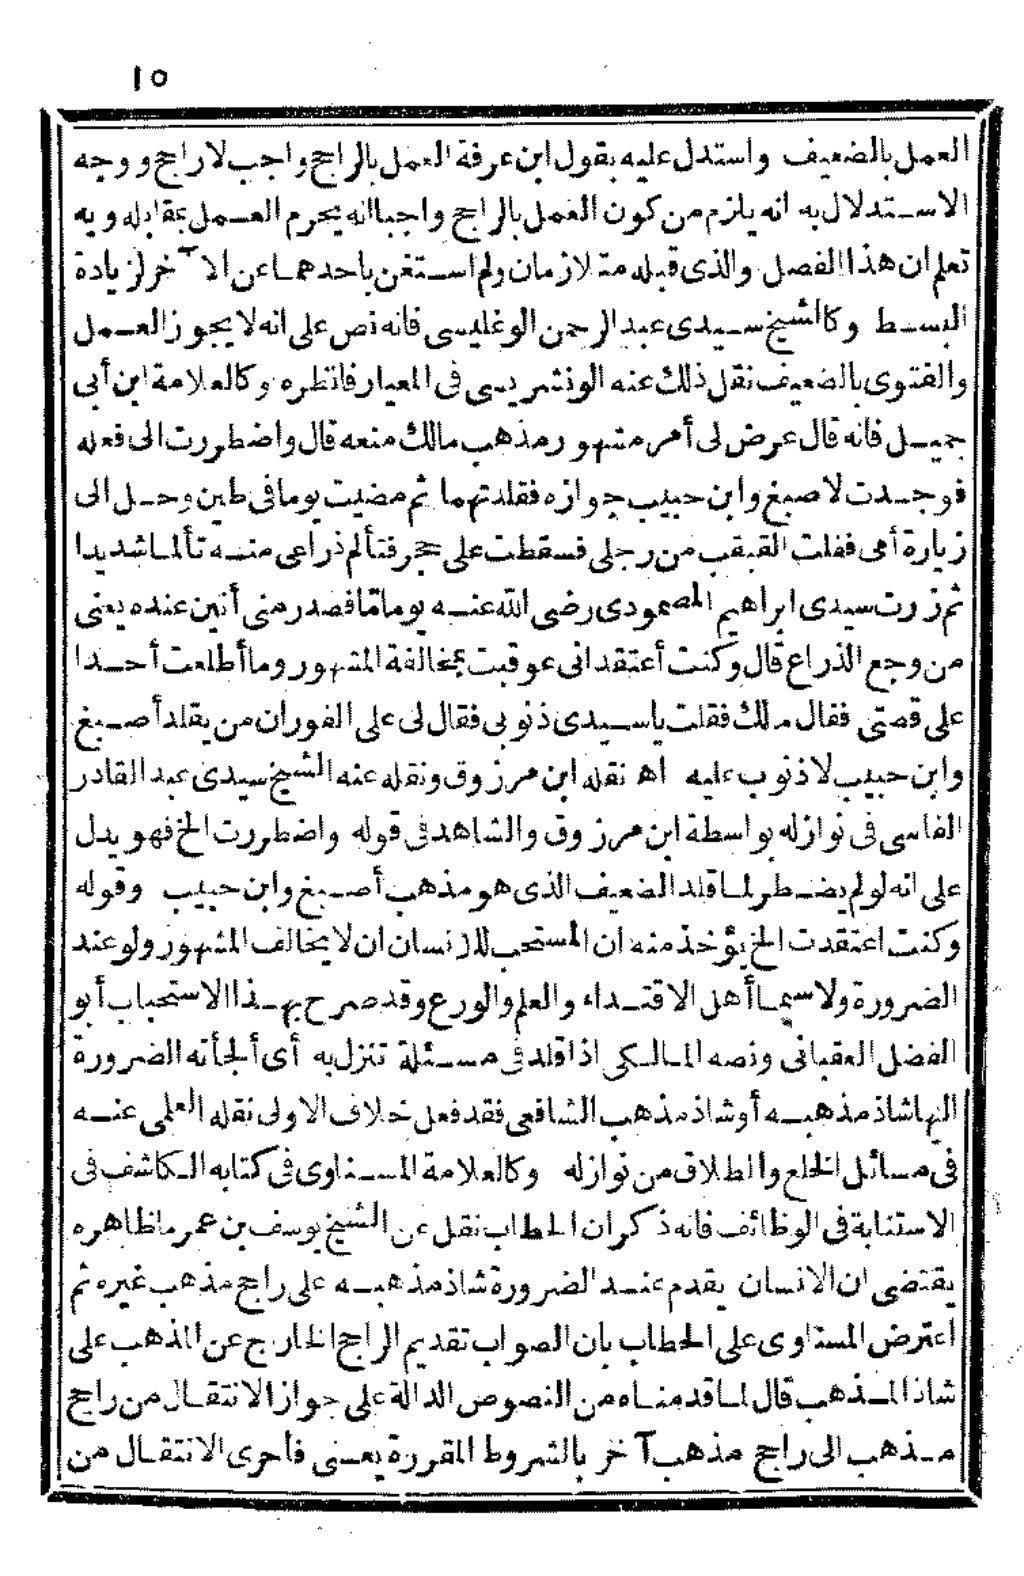 ١٥
العمل بالضعيف واستدل عليه بقول ابن عرفة العمل بالراجح واجب لا راجح ووجه
الاستدلال به انه يلزم من كون العمل بالراجح واجبا انه يحرم العمل بمقابله وبه
تعلم ان هذا الفصل والذى قبله متلازمان ولم استغن باحدهما عن الآخر لزيادة
البسط وكالشيخ سيدى عبد الرحمن الوغليسى فانه نص على انه لا يجوز العمل
والفتوى بالضعيف نقل ذلك عنه الونشريسى فى المعيار فانظره وكالعلامة ابن أبى
جميل فانه قال عرض لى أمر مشهور مذهب مالك منعه قال واضطررت الى فعله
فوجدت لاصبغ وابن حبيب جوازه فقلدتهما ثم مضيت يوما فى طين وحل الى
زيارة أمى ففلت القبقب من رجلى فسقطت على حجر فتألم ذراعى منه تألما شديدا
ثم زرت سيدى ابراهيم المصمودى رضى الله عنه يوما ما فصدر منى أنين عنده يعنى
من وجع الذراع قال وكنت أعتقد انى عوقبت بمخالفة المشهور وما أطلعت أحدا
على قصتى فقال مالك فقلت ياسيدى ذنوبى فقال لى على الفور ان من يقلد أصبغ
وابن حبيب لا ذنوب عليه اه نقله ابن مرزوق ونقله عنه الشيخ سيدى عبد القادر
الفاسى فى نوازله بواسطة ابن مرزوق والشاهد فى قوله واضطررت الخ فهو يدل
على انه لو لم يضطر لما قلد الضعيف الذى هو مذهب أصبغ وابن حبيب وقوله
وكنت اعتقدت الخ يؤخذ منه ان المستحب للانسان ان لا يخالف المشهور ولو عند
الضرورة ولا سيما أهل الاقتداء والعلم والورع وقد صرح بهذا الاستحباب أبو
الفضل العقبانى ونصه المالكى اذا قلد فى مسئلة تنزل به أى ألجأته الضرورة
اليها شاذ مذهبه أو شاذ مذهب الشافعى فقد فعل خلاف الاولى نقله العلمى عنه
فى مسائل الخلع والطلاق من نوازله وكالعلامة المسناوى فى كتابه الكاشف فى
الاستنابة فى الوظائف فانه ذكر ان الحطاب نقل عن الشيخ يوسف بن عمر ما ظاهره
يقتضى ان الانسان يقدم عند الضرورة شاذ مذهبه على راجح مذهب غيره ثم
اعترض المسناوى على الحطاب بان الصواب تقديم الراجح الخارج عن المذهب على
شاذ المذهب قال لما قدمناه من النصوص الدالة على جواز الانتقال من راجح
مذهب الى راجح مذهب آخر بالشروط المقررة يعنى فأحرى الانتقال من